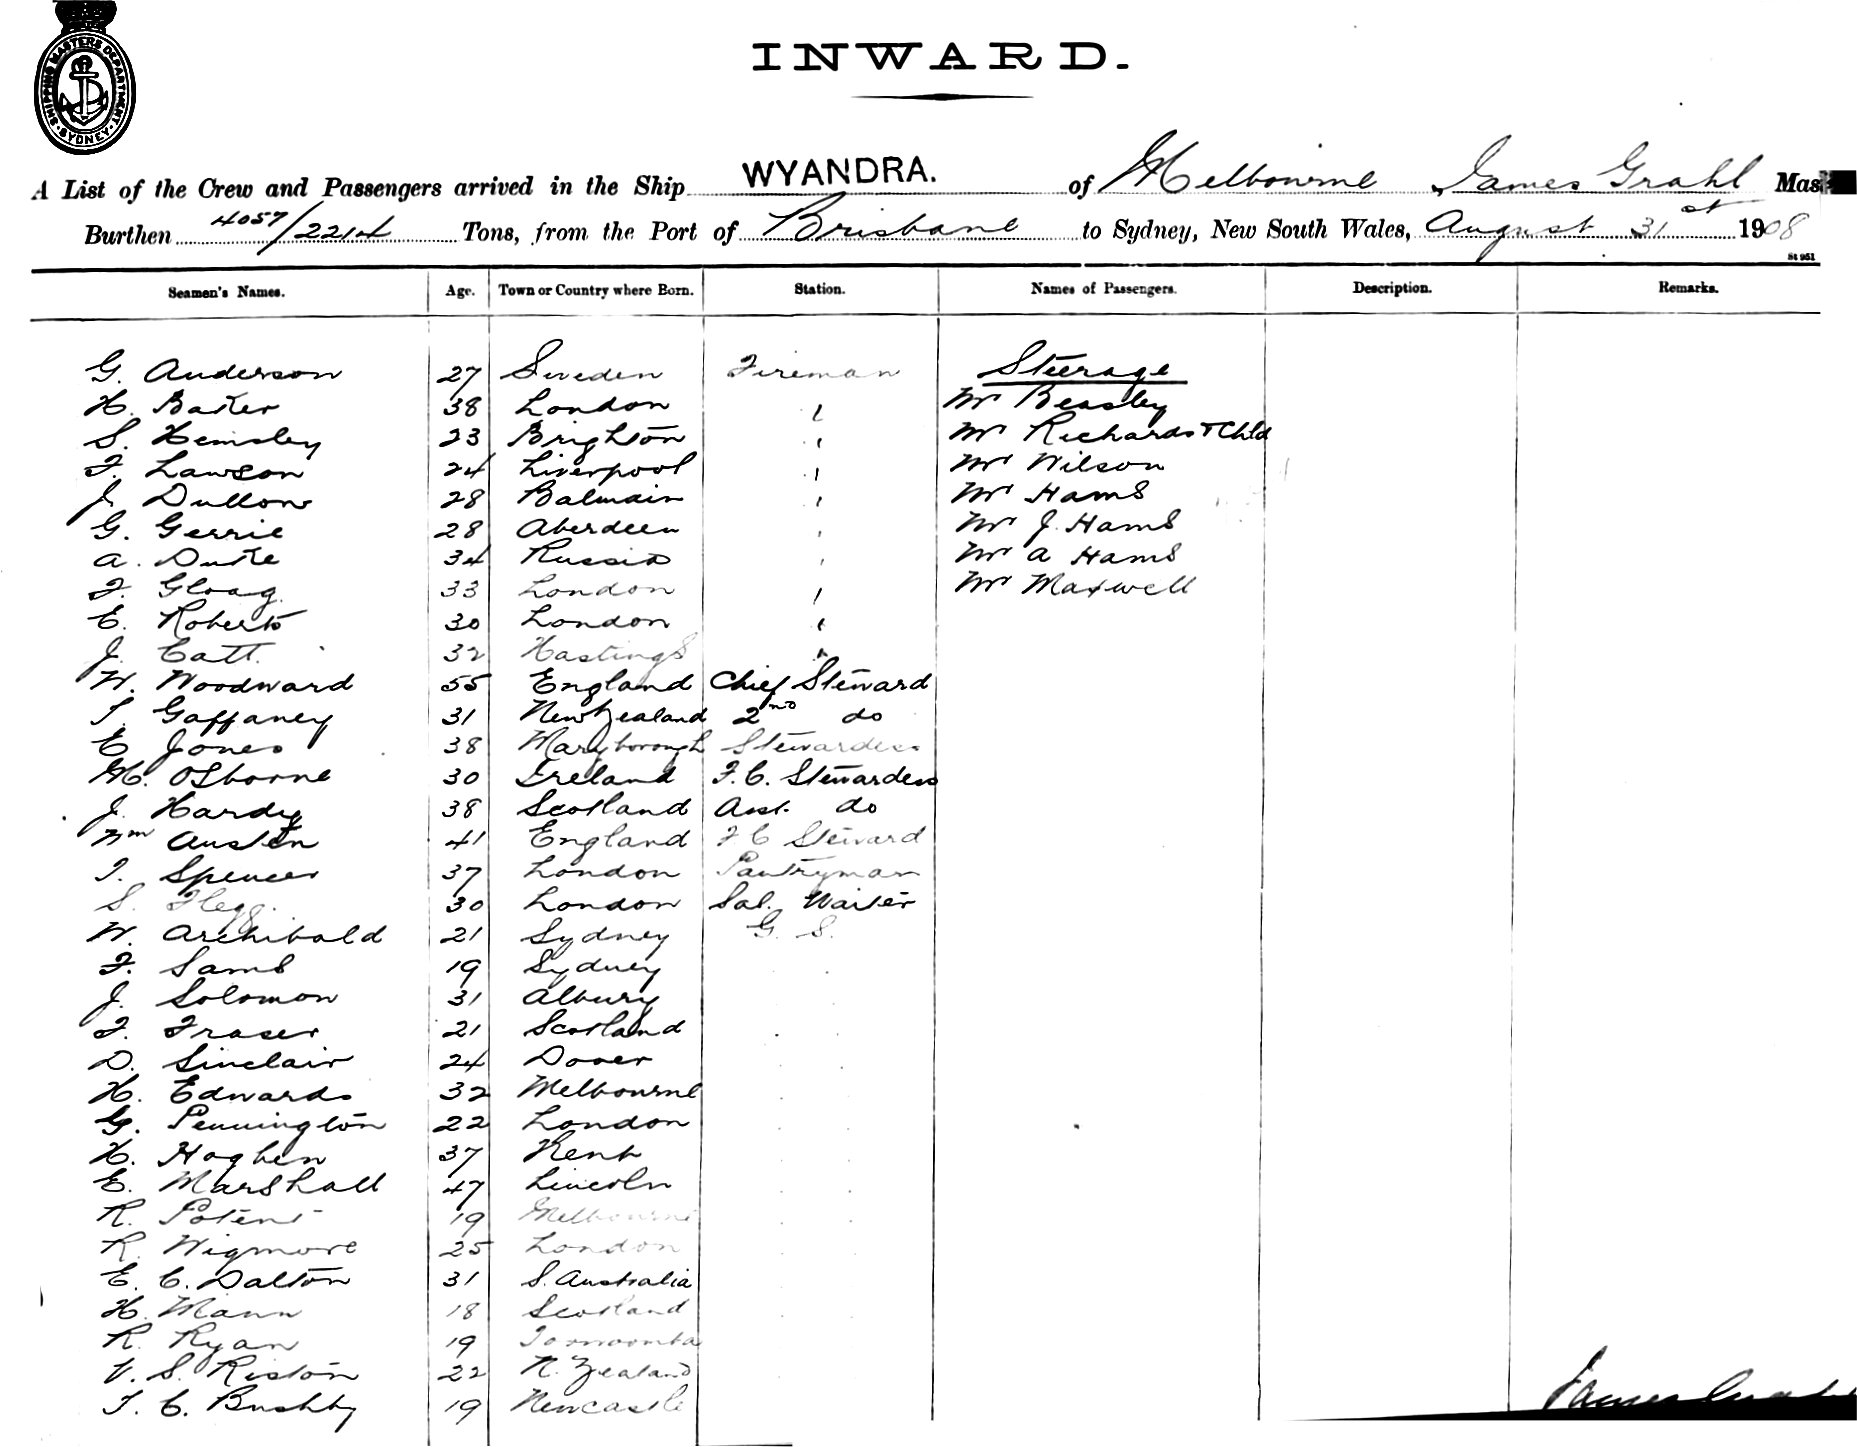 SHIPPING MASTERS DEPARTMENT · SYDNEY ·
INWARD.
A List of the Crew and Passengers arrived in the Ship WYANDRA. of Melbourne James Grahl Mas
Burthen 4057/2214 Tons, from the Port of Brisbane to Sydney, New South Wales, August 31st 1908
St 951
Seamen's Names. Age. Town or Country where Born. Station. Names of Passengers. Description. Remarks.
G. Anderson 27 Sweden Fireman Steerage
H. Baker 38 London " Mr Beasley
S. Hemsley 23 Brighton " Mr Richards & Chld
F. Lawson 24 Liverpool " Mr Wilson
J. Dullow 28 Balmain " Mr Hams
G. Gerrie 28 Aberdeen " Mr J. Hams
A. Duke 34 Russia " Mr A Hams
F. Gloag 33 London " Mr Maxwell
E. Roberts 30 London "
J. Catt. 32 Hastings "
W. Woodward 55 England Chief Steward
T. Gaffaney 31 New Zealand 2nd do
E Jones 38 Maryborough Stewardess
M. Osborne 30 Ireland F.C. Stewardess
J. Hardy 38 Scotland Asst. do
Wm Austen 41 England F C Steward
T. Spencer 37 London Pantryman
S. Flegg. 30 London Sal. Waiter
W. Archibald 21 Sydney G. S.
F. Sams 19 Sydney
J. Solomon 31 Albury
F. Fraser 21 Scotland
D. Sinclair 24 Dover
H. Edwards 32 Melbourne
G. Pennington 22 London
H. Hogben 37 Kent
E. Marshall 47 Lincoln
R. Potent 19 Melbourne
R. Wigmore 25 London
E. C. Dalton 31 S. Australia
H. Mann 18 Scotland
R. Ryan 19 Toowoomba
V. S. Riston 22 N. Zealand
T. C. Bushby 19 Newcastle
James Grahl